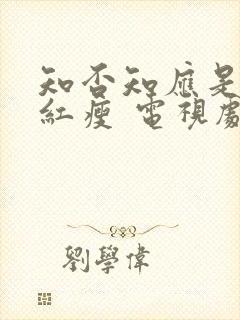 知否知應是
紅瘦 電視劇
劉學偉